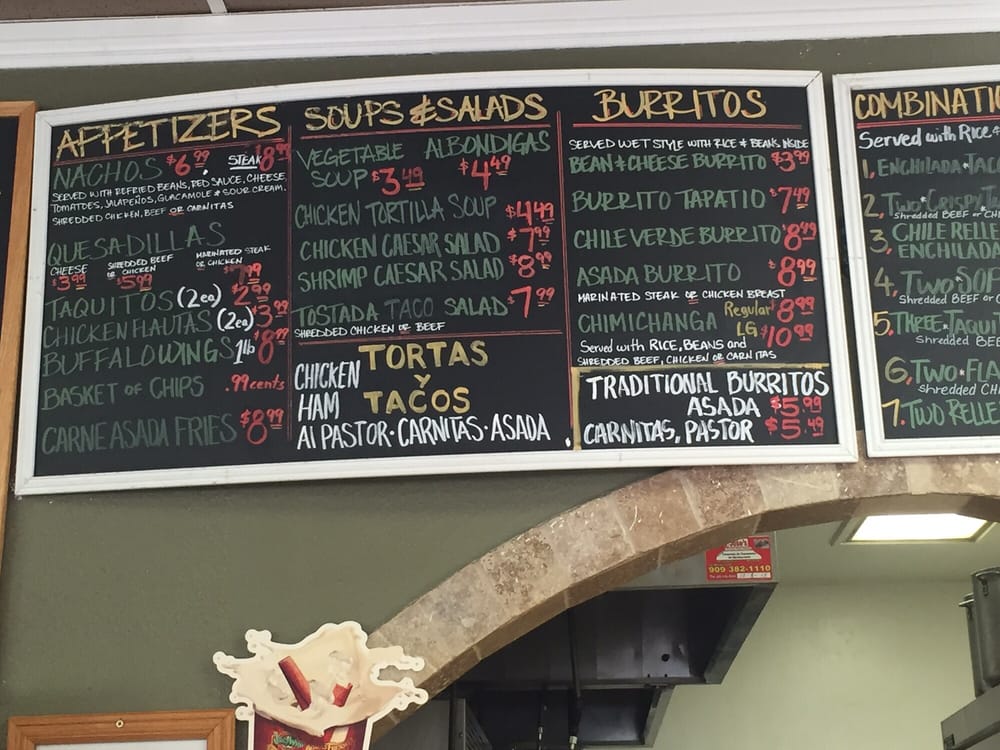 APPETIZERS
NACHOS $6.99 STEAK $8.99
SERVED WITH REFRIED BEANS, RED SAUCE, CHEESE,
TOMATOES, JALAPEÑOS, GUACAMOLE & SOUR CREAM.
SHREDDED CHICKEN, BEEF OR CARNITAS
QUESADILLAS
CHEESE $3.99
SHREDDED BEEF OR CHICKEN $5.99
MARINATED STEAK OR CHICKEN $7.99
TAQUITOS (2ea) $2.99
CHICKEN FLAUTAS (2ea) $3.99
BUFFALO WINGS 1lb $8.99
BASKET OF CHIPS .99 cents
CARNE ASADA FRIES $8.99
SOUPS & SALADS
VEGETABLE SOUP $3.49
ALBONDIGAS $4.49
CHICKEN TORTILLA SOUP $4.49
CHICKEN CAESAR SALAD $7.99
SHRIMP CAESAR SALAD $8.99
TOSTADA TACO SALAD $7.99
SHREDDED CHICKEN OR BEEF
TORTAS
Y
TACOS
CHICKEN
HAM
Al PASTOR · CARNITAS · ASADA
BURRITOS
SERVED WET STYLE WITH RICE & BEANS INSIDE
BEAN & CHEESE BURRITO $3.99
BURRITO TAPATIO $7.49
CHILE VERDE BURRITO $8.99
ASADA BURRITO $8.99
MARINATED STEAK OR CHICKEN BREAST
CHIMICHANGA Regular $8.99
LG $10.99
Served with RICE, BEANS and
SHREDDED BEEF, CHICKEN OR CARNITAS
TRADITIONAL BURRITOS
ASADA $5.99
CARNITAS, PASTOR $5.49
COMBINATI
Served with Rice &
1, ENCHILADA * TACO
2, Two * CRISPY T
Shredded BEEF or CH
3, CHILE RELLE
ENCHILADA
4, Two SOF
Shredded BEEF or C
5, THREE * TAQUI
Shredded BEE
6, Two * FLA
Shredded CH
7. TWO RELLE
909 382-1110